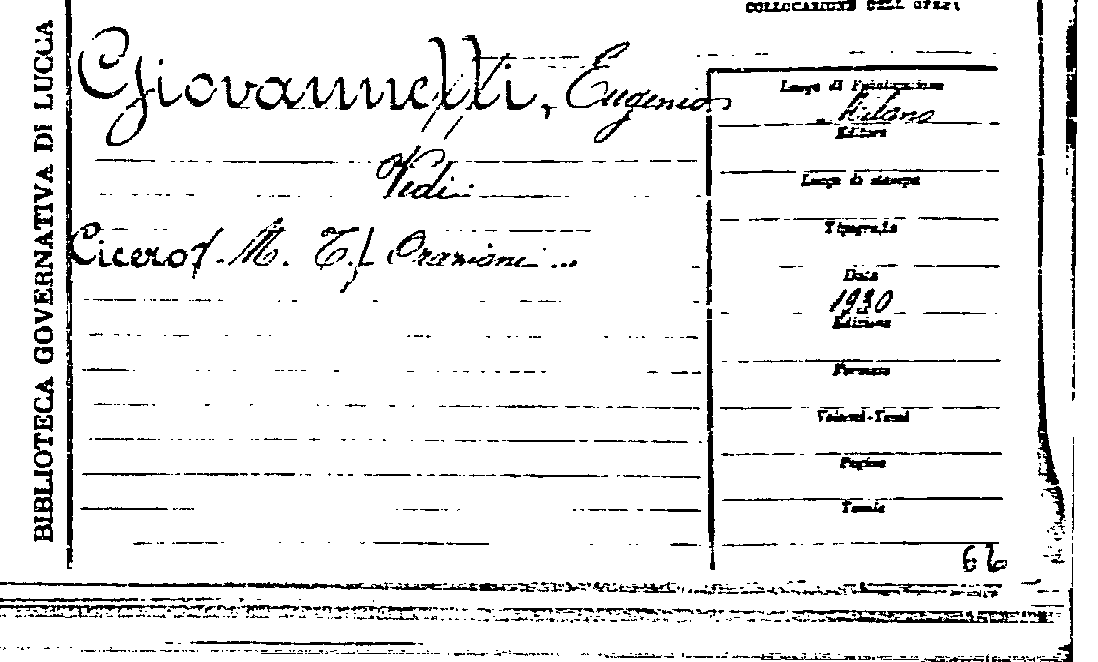 COLLOCAZIONE DELL'OPERA
BIBLIOTECA GOVERNATIVA DI LUCCA
Giovannetti, Eugenio
Vedi:
Cicero /. M. T./ Orazioni ...
Luogo di Pubblicazione
Milano
Editore
Luogo di stampa
Tipografia
Data
1930
Edizione
Formato
Volumi-Tomi
Pagine
Tavole
66